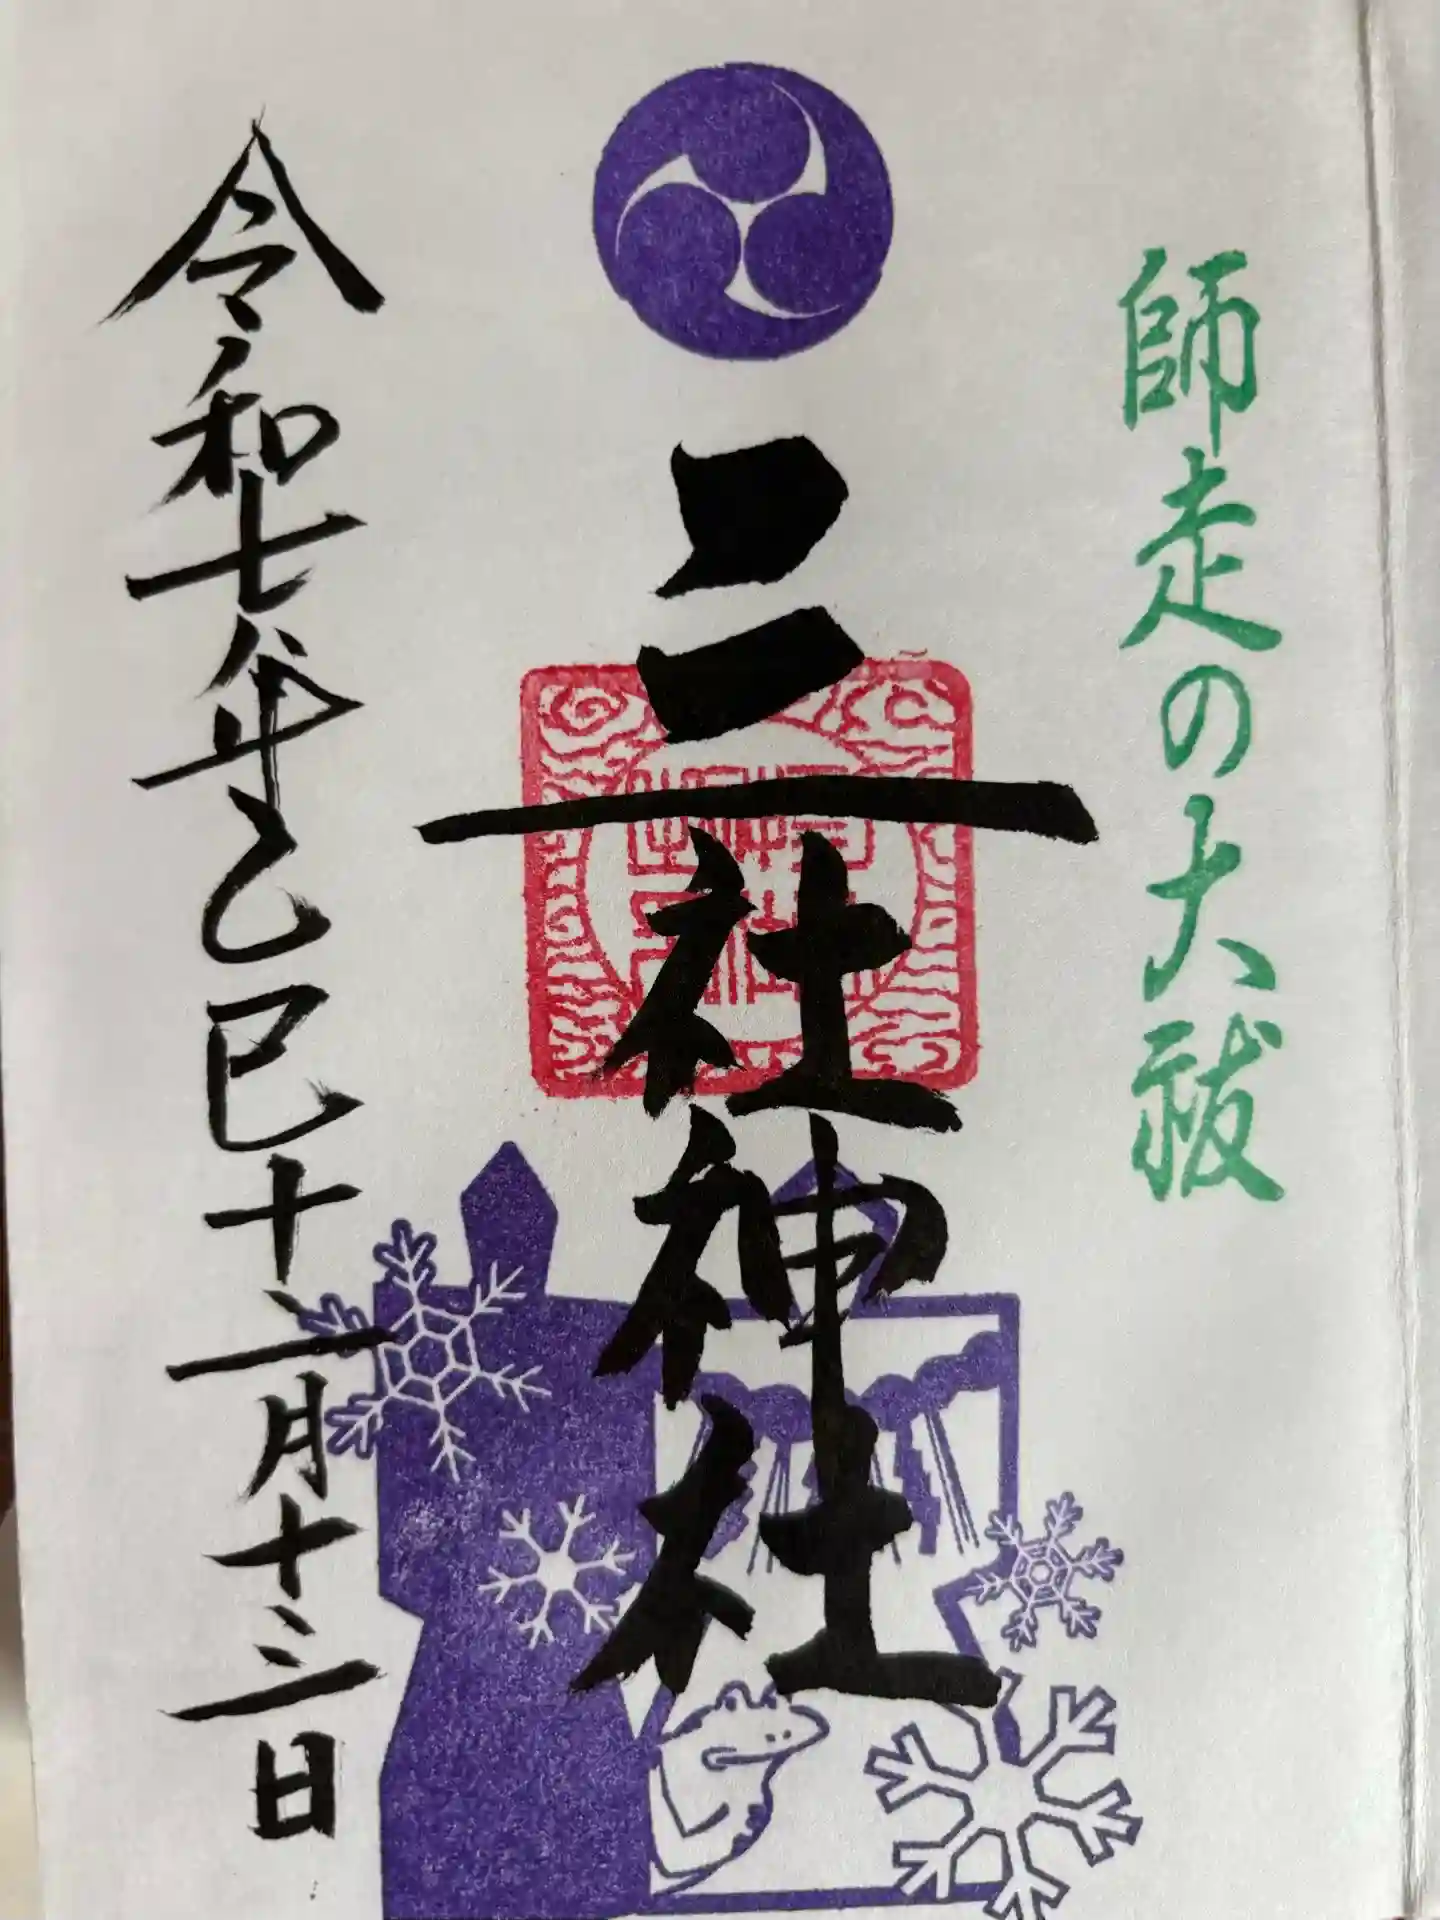 師走の大祓
三社神社
令和七年乙巳十二月十三日